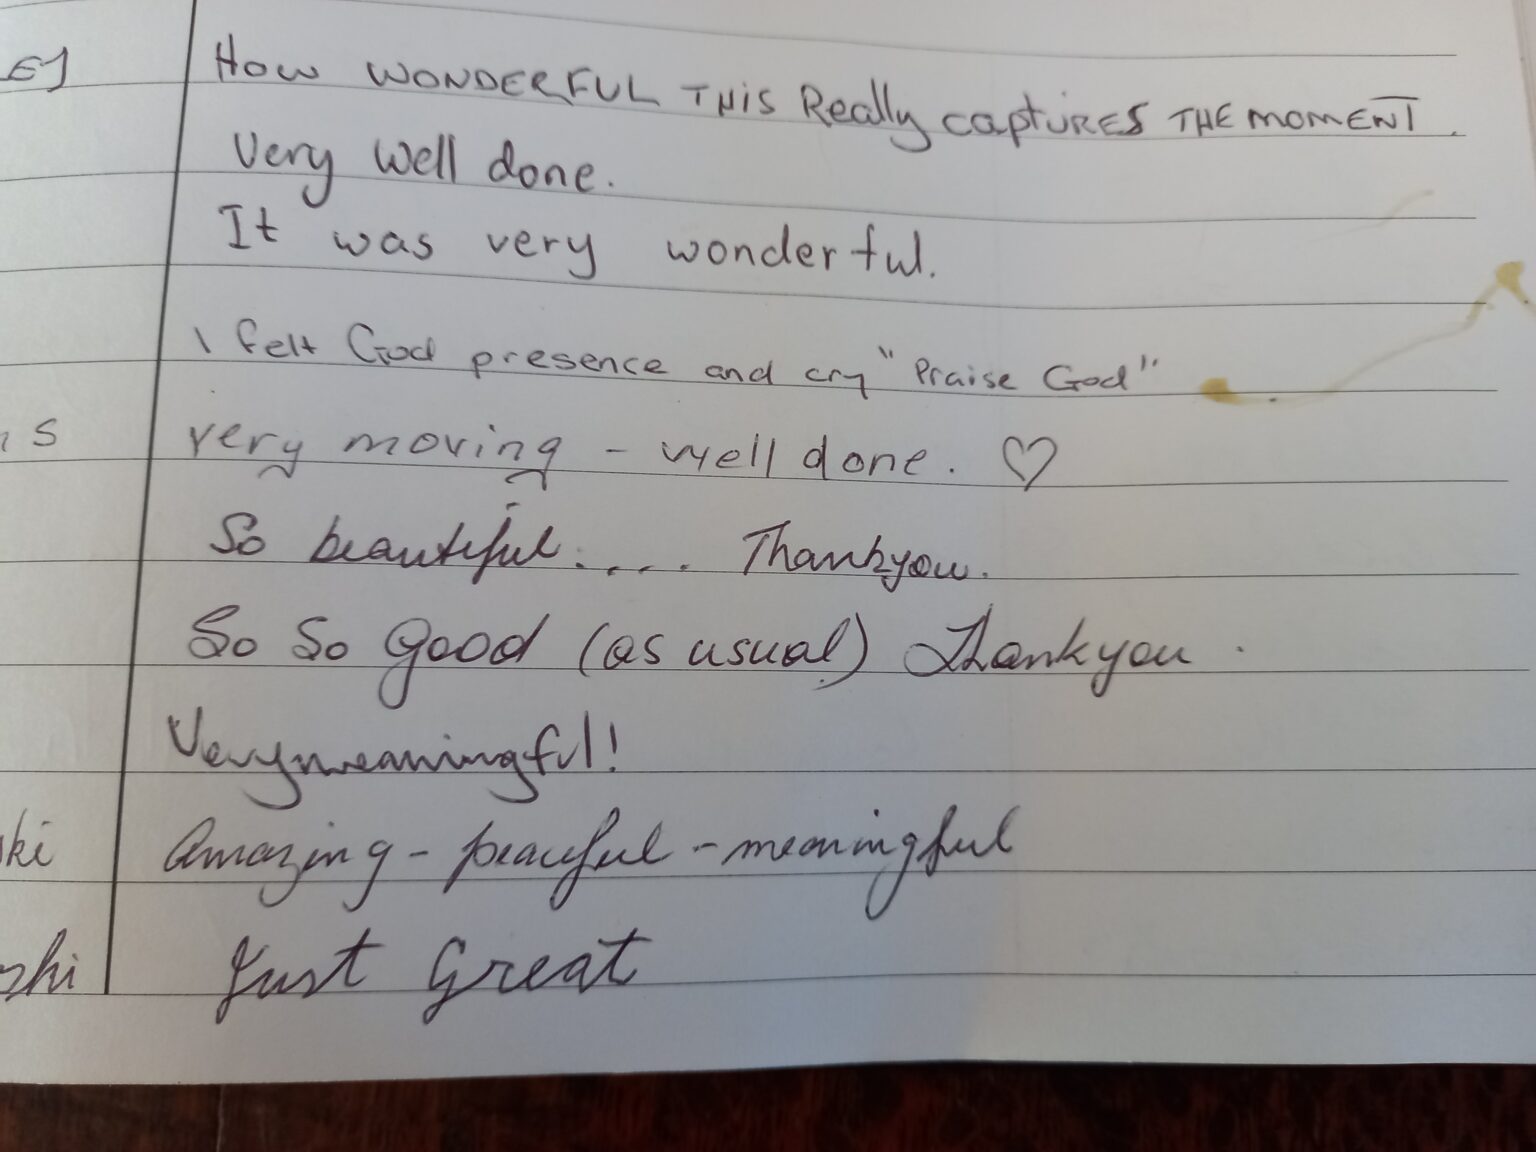 EY HOW WONDERFUL THIS Really captURES THE MOMENT.
Very well done.
It was very wonderful.
I felt God presence and cry "Praise God"
s very moving - well done. ♡
So beautiful..... Thankyou.
So So Good (as usual) Thankyou.
Very meaningful!
ki Amazing - peaceful - meaningful
shi Just Great